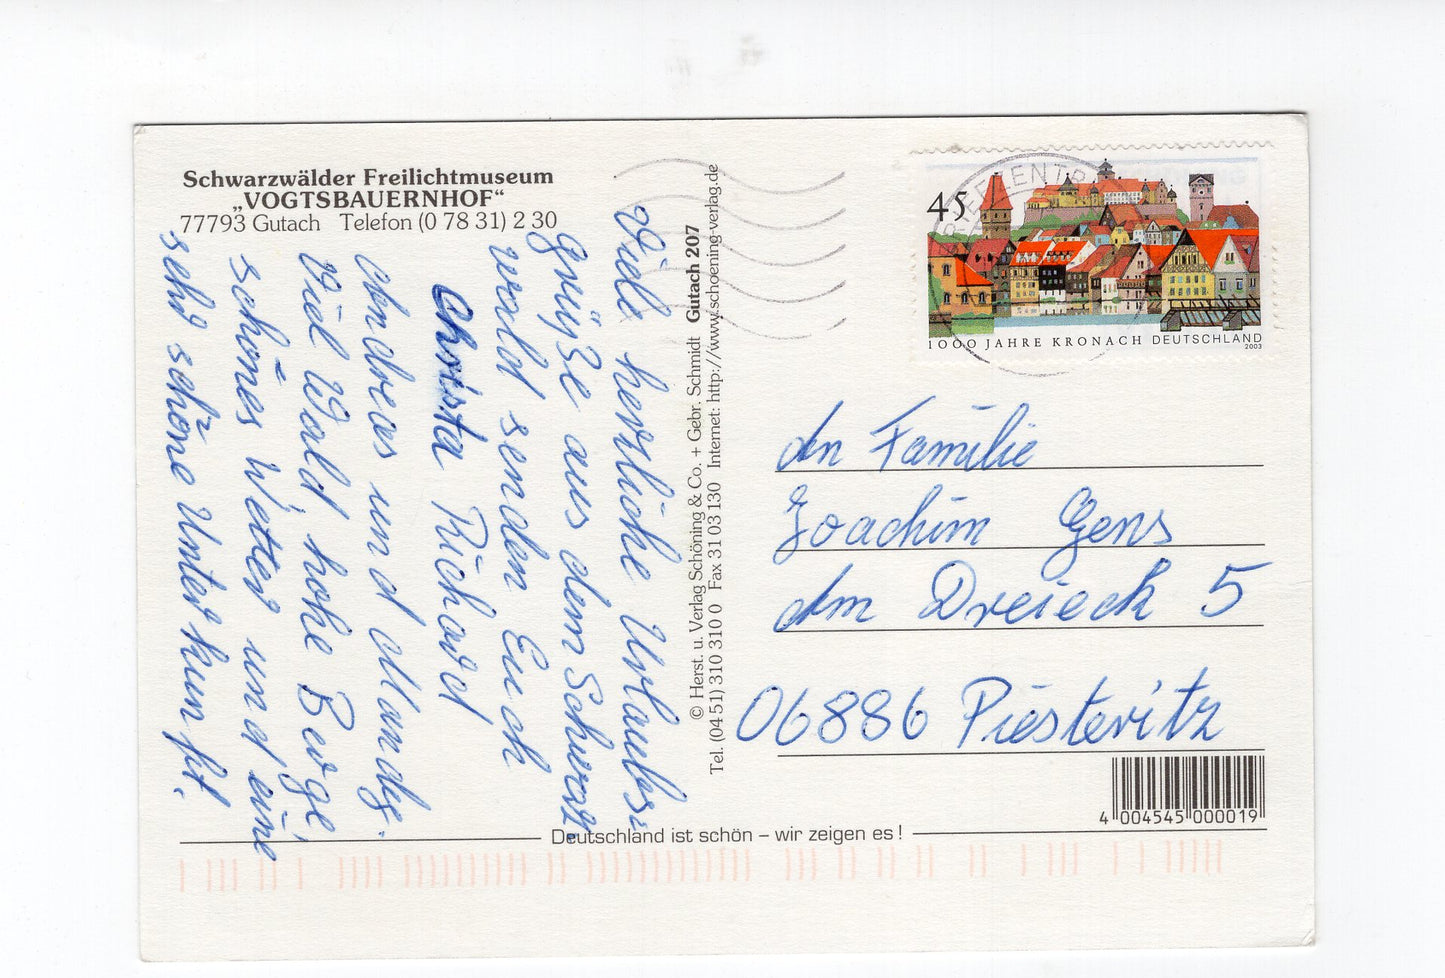 Schwarzwälder Freilichtmuseum
„VOGTSBAUERNHOF“
77793 Gutach Telefon (0 78 31) 2 30
Viele herrliche Urlaubs-
grüße aus dem Schwarz
wald senden Euch
Christa Richard
Andreas und Mandy.
Viel Wald, hohe Berge,
schönes Wetter und eine
sehr schöne Unterkunft.
© Herst. u. Verlag Schöning & Co. + Gebr. Schmidt Gutach 207
Tel. (04 51) 310 310 0 Fax 31 03 130 Internet: http://www.schoening-verlag.de
BRIEFZENTR
45
1000 JAHRE KRONACH DEUTSCHLAND
2003
An Familie
Joachim Gens
Am Dreieck 5
06886 Piesteritz
4 004545 000019
Deutschland ist schön – wir zeigen es !